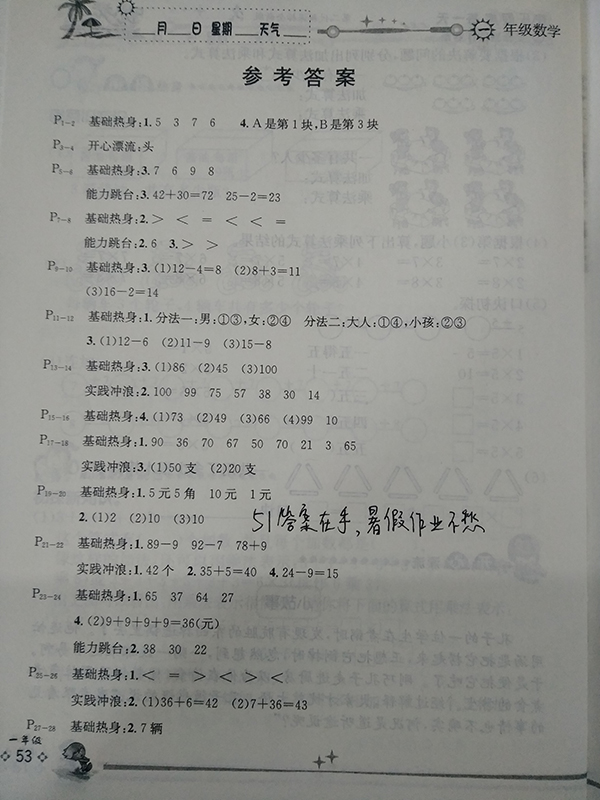 月 日 星期 天气
一 年级数学
参考答案
P1-2 基础热身:1. 5 3 7 6 4. A是第1块,B是第3块
P3-4 开心漂流:头
P5-6 基础热身:3. 7 6 9 8
能力跳台:3. 42+30=72 25-2=23
P7-8 基础热身:2. > < = < < =
能力跳台:2. 6 3. > >
P9-10 基础热身:3. (1)12-4=8 (2)8+3=11
(3)16-2=14
P11-12 基础热身:1. 分法一:男:①③,女:②④ 分法二:大人:①④,小孩:②③
3. (1)12-6 (2)11-9 (3)15-8
P13-14 基础热身:3. (1)86 (2)45 (3)100
实践冲浪:2. 100 99 75 57 38 30 14
P15-16 基础热身:4. (1)73 (2)49 (3)66 (4)99 10
P17-18 基础热身:1. 90 36 70 67 50 70 21 3 65
实践冲浪:3. (1)50支 (2)20支
P19-20 基础热身:1. 5元5角 10元 1元
2. (1)2 (2)10 (3)10
51答案在手,暑假作业不愁
P21-22 基础热身:1. 89-9 92-7 78+9
实践冲浪:1. 42个 2. 35+5=40 4. 24-9=15
P23-24 基础热身:1. 65 37 64 27
4. (2)9+9+9+9=36(元)
能力跳台:2. 38 30 22
P25-26 基础热身:1. < = > < > <
实践冲浪:2. (1)36+6=42 (2)7+36=43
P27-28 基础热身:2. 7辆
一年级
53